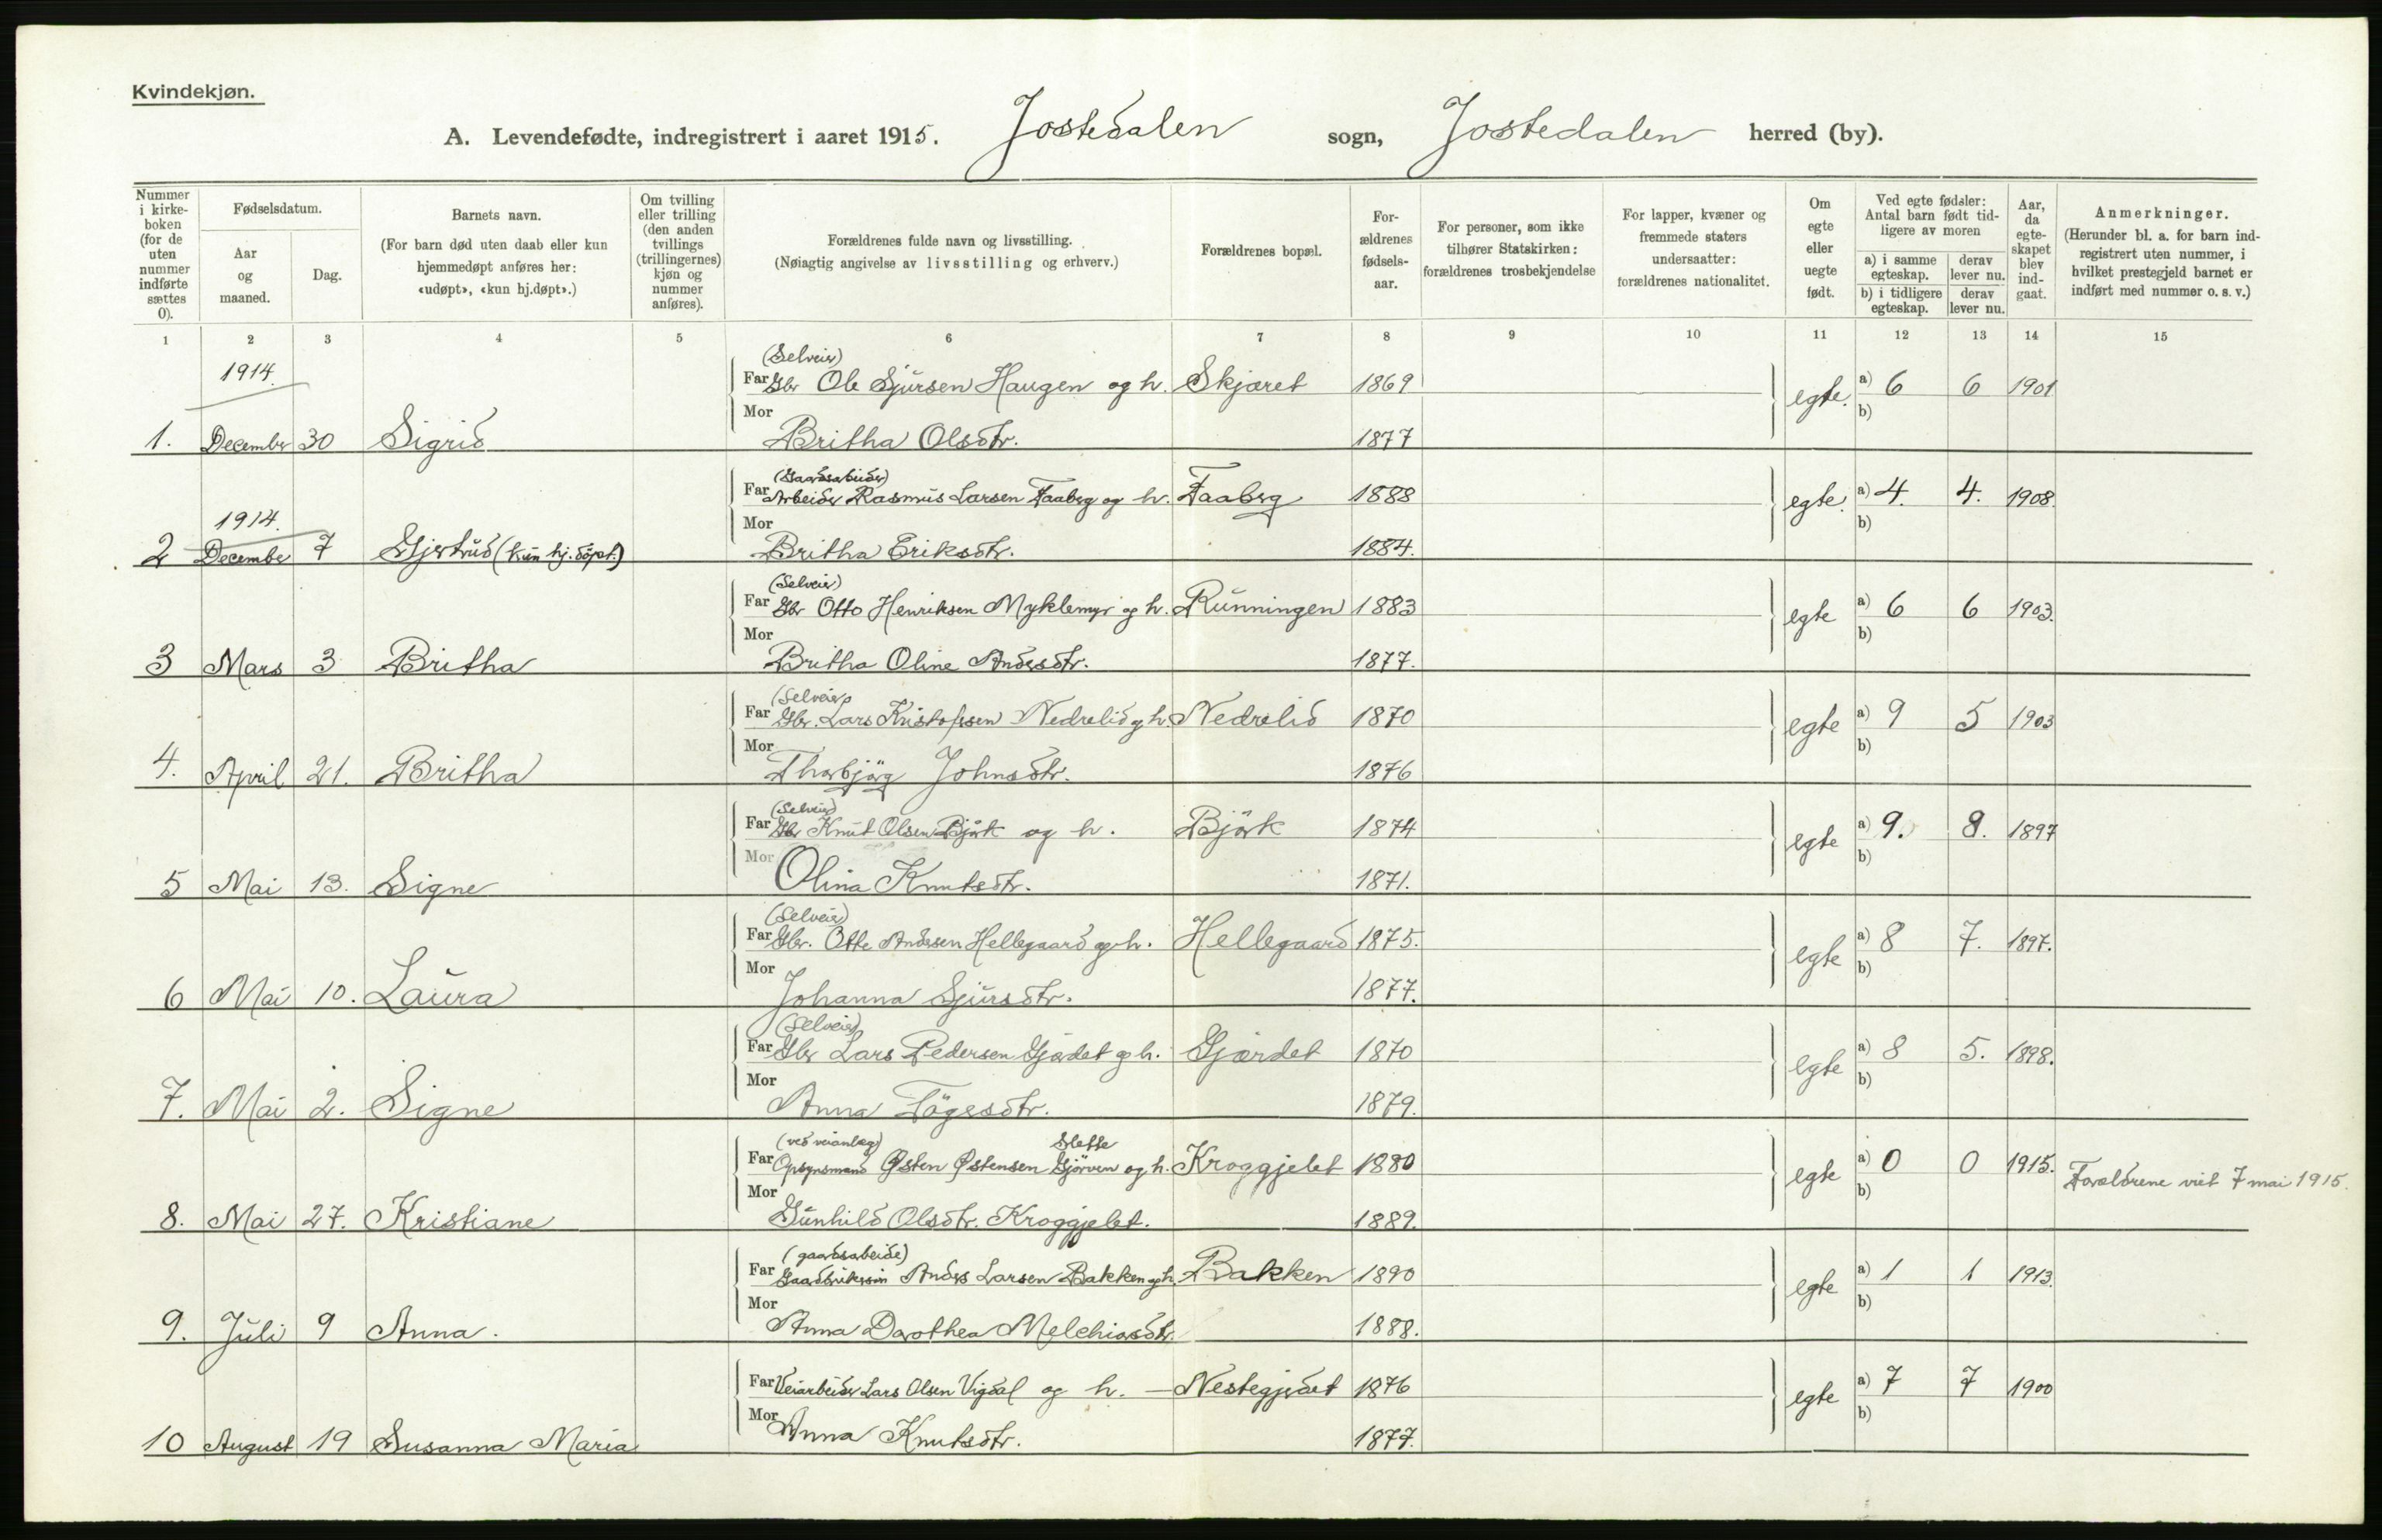 Kvindekjøn.
A. Levendefødte, indregistrert i aaret 1915. Jostedalen sogn, Jostedalen herred (by).
Nummer i kirke-boken (for de uten nummer indførte sættes 0).
Fødselsdatum.
Aar og maaned.
Dag.
Barnets navn.
(For barn død uten daab eller kun hjemmedøpt anføres her: «udøpt», «kun hj.døpt».)
Om tvilling eller trilling (den anden tvillings (trillingernes) kjøn og nummer anføres).
Forældrenes fulde navn og livsstilling.
(Nøiagtig angivelse av livsstilling og erhverv.)
Forældrenes bopæl.
For-ældrenes fødsels-aar.
For personer, som ikke tilhører Statskirken: forældrenes trosbekjendelse
For lapper, kvæner og fremmede staters undersaatter: forældrenes nationalitet.
Om egte eller uegte født.
Ved egte fødsler: Antal barn født tid-ligere av moren
a) i samme egteskap. derav lever nu.
b) i tidligere egteskap. derav lever nu.
Aar, da egte-skapet blev ind-gaat.
Anmerkninger.
(Herunder bl. a. for barn ind-registrert uten nummer, i hvilket prestegjeld barnet er indført med nummer o. s. v.)
1 2 3 4 5 6 7 8 9 10 11 12 13 14 15
1914. (Selveier)
Far Gbr Ole Sjursen Haugen og h. Skjæret 1869 egte. a) 6 6 1901
b)
1. December 30 Sigrid Mor Britha Olsdtr. 1877
(Gaardsarbeider)
Far Arbeider Rasmus Larsen Faaberg og h. Faaberg 1888 egte. a) 4. 4. 1908.
1914. b)
2 December 7 Gjertrud (kun hj.döpt.) Mor Britha Eriksdtr. 1884.
(Selveier)
Far Gbr Otto Henriksen Myklemyr og h. Runningen 1883 egte a) 6 6 1903.
b)
3 Mars 3 Britha Mor Britha Oline Andersdtr. 1877.
(Selveier)
Far Gbr. Lars Kristofersen Nedrelid og h. Nedrelid 1870 egte a) 9 5 1903
b)
4. April 21. Britha Mor Thorbjörg Johnsdtr. 1876
(Selveier)
Far Gbr Knut Olsen Björk og h. Björk 1874 egte a) 9. 8. 1897
b)
5 Mai 13. Signe Mor Olina Knutsdtr. 1871.
(Selveier)
Far Gbr. Otte Andersen Hellegaard og h. Hellegaard 1875. egte a) 8 7. 1897.
b)
6 Mai 10. Laura Mor Johanna Sjursdtr. 1877.
(Selveier)
Far Gbr Lars Pedersen Gjærdet og h. Gjærdet 1870 egte a) 8 5. 1898.
b)
7. Mai 2. Signe Mor Anna Tögersdtr. 1879.
(ved veianlæg) Slette
Far Opsynsmand Østen Østensen Gjörven og h. Kroggjelet 1880 egte a) 0 0 1915. Forældrene viet 7 mai 1915.
b)
8. Mai 27. Kristiane Mor Gunhild Olsdtr. Kroggjelet. 1889.
(gaardsarbeide)
Far Gaardbrukersön Anders Larsen Bakken og h. Bakken 1890 egte a) 1 1 1913.
b)
9. Juli 9 Anna. Mor Anna Dorothea Melchiorsdtr 1888.
Far Veiarbeider Lars Olsen Vigdal og h. — Nestegjerdet 1876 egte a) 7 7 1900
b)
10 August 19 Susanna Maria Mor Anna Knutsdtr. 1877.